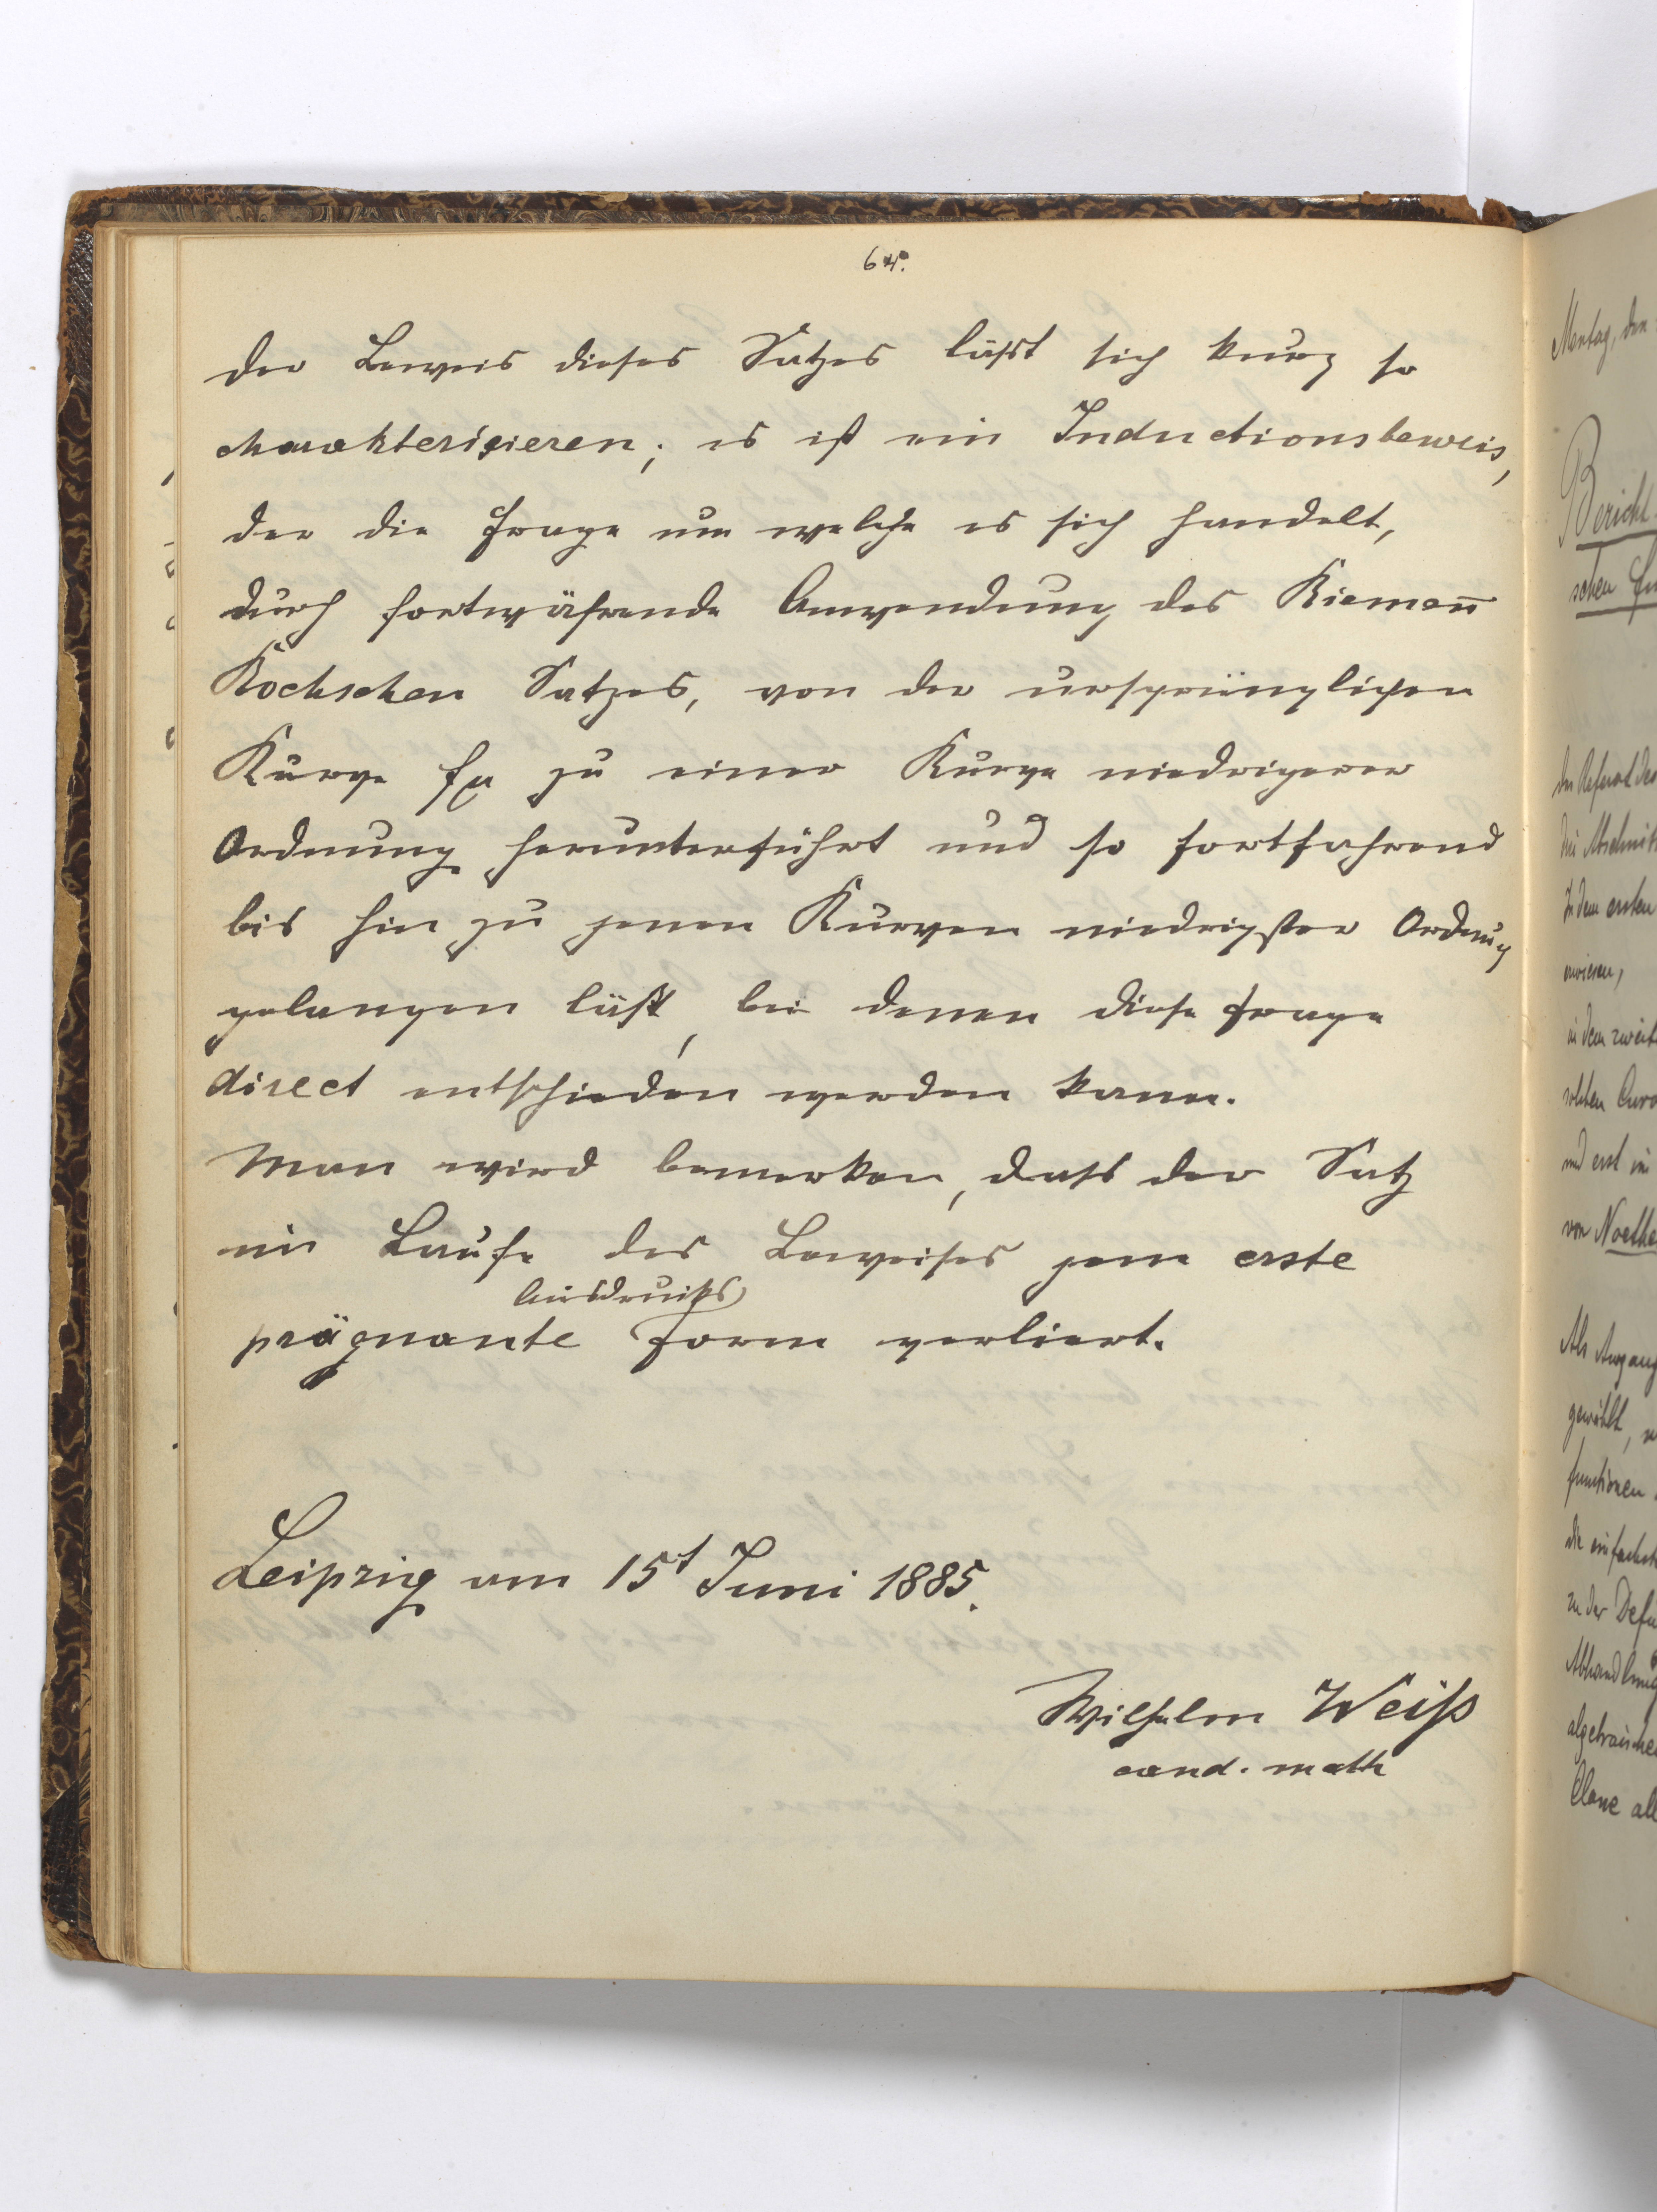 64.
der Beweis dieses Satzes lässt sich kurz so
charakterisieren; es ist ein Inductionsbeweis,
der die Frage um welche es sich handelt,
durch fortwährende Anwendung des Riemann̄
Rochschen Satzes, von der ursprünglichen
Kurve fμ zu einer Kurve niedrigerer
Ordnung herunterführt und so fortfahrend
bis hin zu jenen Kurven niedrigster Ordnung
gelangen läßt, bei denen diese Frage
direct entschieden werden kann.
Man wird bemerken, dass der Satz
im Laufe des Beweises jene erste
Ausdrucks
prägnante Form verliert.
Leipzig am 15t Juni 1885.
Wilhelm Weiß
cand. math
Montag, den
Bericht
schen
Das Referat des
In dem ersten
in dem zweit
und erst im
von Noethe
Als Ausgang
gewählt,
functionen
die einfachst
zu der Defin
Abhandlung